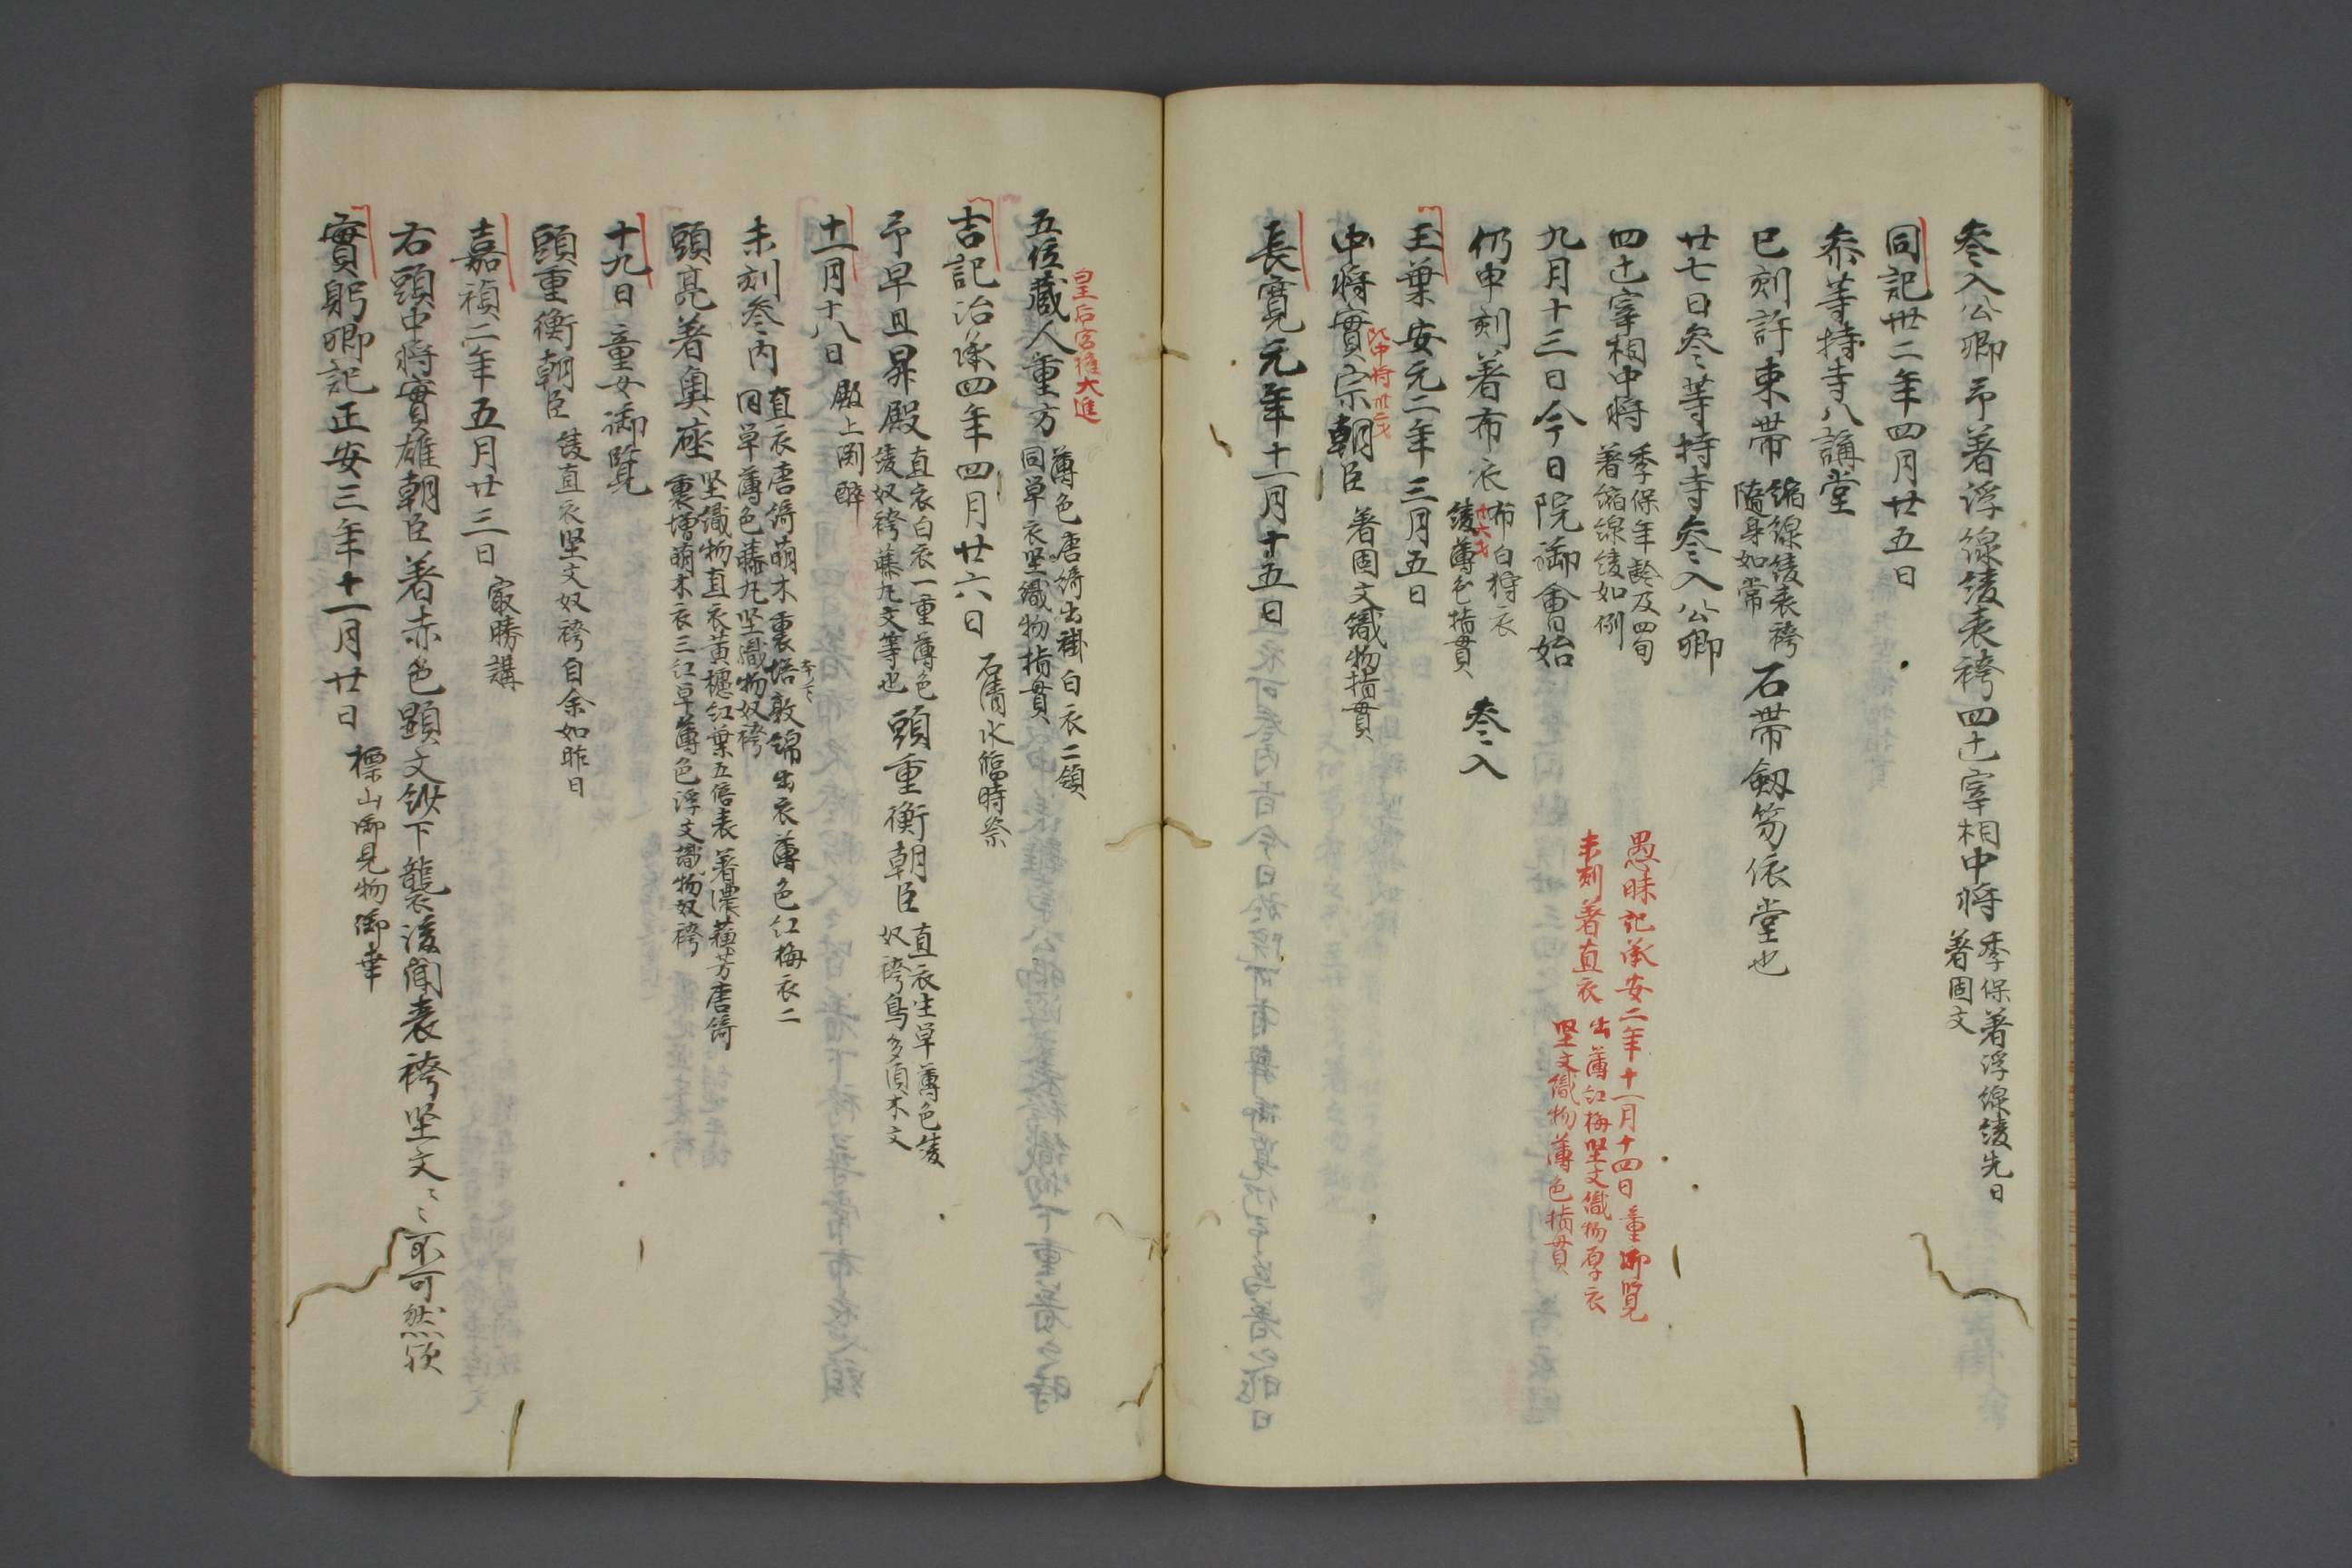 参入公卿予著浮線綾表袴四辻宰相中将季保著浮線綾先日
著固文
同記卅二年四月廿五日
参等持寺八講堂
巳刻許束帯縮線綾表袴
随身如常
石帯劔笏依堂也
廿七日参等持寺参入公卿
四辻宰相中将季保年齢及四旬
著縮線綾如例
愚昧記承安二年十一月十四日童御覧
未刻著直衣出薄紅梅堅文織物厚衣
堅文織物薄色指貫
九月十三日今日院御會始
仍申刻著布衣布白狩衣
綾薄色指貫
参入
玉葉安元二年三月五日
中将實宗朝臣著固文織物指貫
長寛元年十一月十五日
皇后宮権大進
五位蔵人重方薄色唐綺出褂白衣二領
同単衣堅織物指貫
吉記治承四年四月廿六日石清水臨時祭
予早旦昇殿直衣白衣一重薄色
綾奴袴藤丸文等也
頭重衡朝臣直衣生単薄色綾
奴袴鳥多須木文
十一月十八日殿上淵酔
未刻参内直衣唐綺萌木裏倍敦錦出衣薄色紅梅衣二
同単薄色藤丸堅織物奴袴
頭亮著奥座堅織物直衣黄櫨紅葉五倍表著濃蘓芳唐綺
裏増萌木衣三紅単薄色浮文織物奴袴
十九日童女御覧
頭重衡朝臣綾直衣堅文奴袴自余如昨日
嘉禎二年五月廿三日最勝講
右頭中将實雄朝臣著赤色顕文紗下襲後聞表袴堅文〻〻不可然歟
實躬卿記正安三年十一月廿日標山御見物御幸